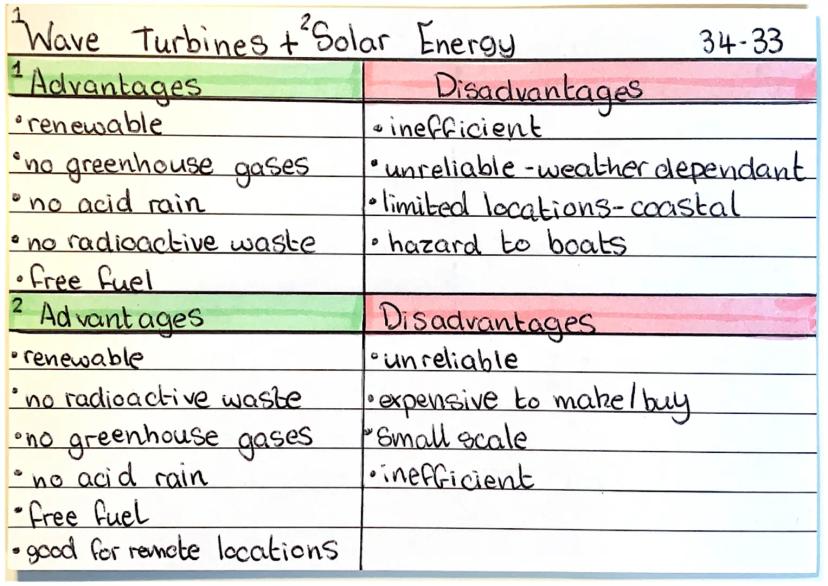 ¹Wave Turbines + ²Solar Energy 34-33
¹Advantages Disadvantages
•renewable •inefficient
•no greenhouse gases •unreliable -weather dependant
•no acid rain •limited locations-coastal
•no radioactive waste •hazard to boats
•free fuel
²Advantages Disadvantages
•renewable •unreliable
•no radioactive waste •expensive to make/buy
•no greenhouse gases •small scale
•no acid rain •inefficient
•free fuel
•good for remote locations